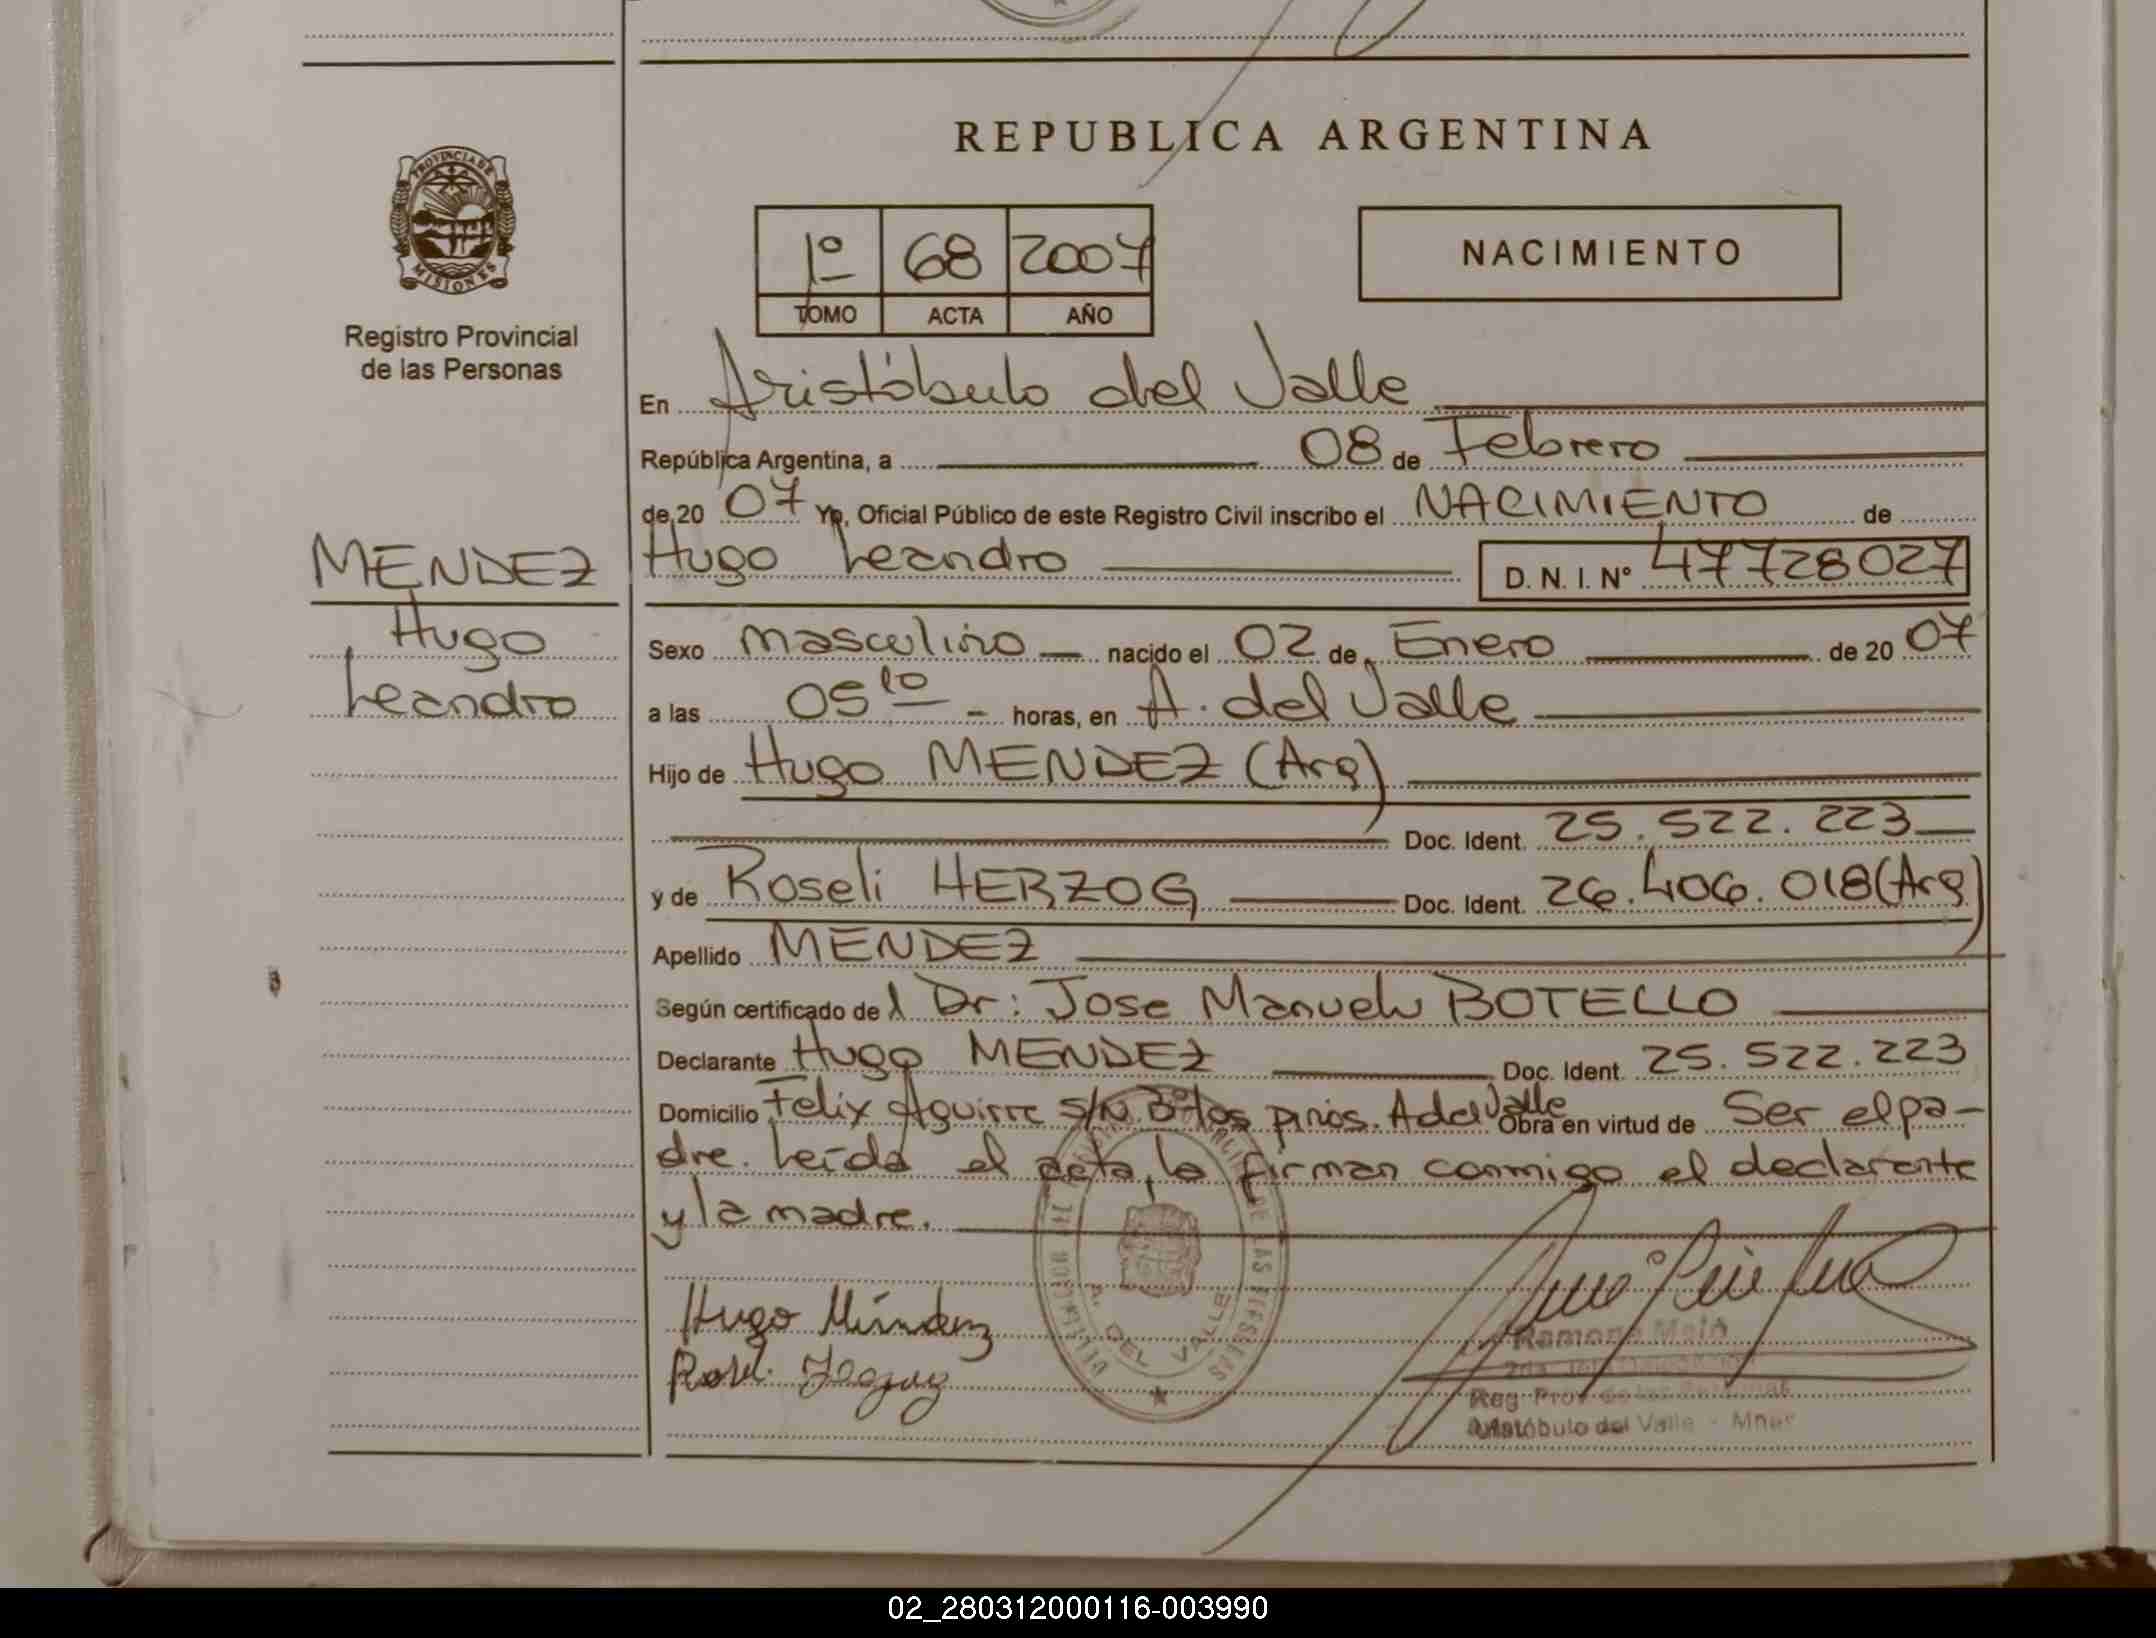 REPUBLICA ARGENTINA
PROVINCIA DE
MISIONES
Registro Provincial
de las Personas
1º 68 2007
TOMO ACTA AÑO
NACIMIENTO
En Aristóbulo del Valle
República Argentina, a 08 de Febrero
de 20 07 Yo, Oficial Público de este Registro Civil inscribo el NACIMIENTO de
MENDEZ
Hugo
Leandro
Hugo Leandro D. N. I. Nº 47728027
Sexo masculino nacido el 02 de Enero de 20 07
a las 05 10 horas, en A. del Valle
Hijo de Hugo MENDEZ (Arg)
Doc. Ident. 25.522.223
y de Roseli HERZOG Doc. Ident. 26.406.018 (Arg)
Apellido MENDEZ
Según certificado de l Dr: Jose Manuel BOTELLO
Declarante Hugo MENDEZ Doc. Ident. 25.522.223
Domicilio Felix Aguirre S/N. Bº los pinos. A del Valle Obra en virtud de Ser el pa-
dre. Leída el acta, la firman conmigo el declarante
y la madre.
Hugo Méndez
A. DEL VALLE
Reg Prov de las Personas
Aristóbulo del Valle - Mnes
02_280312000116-003990